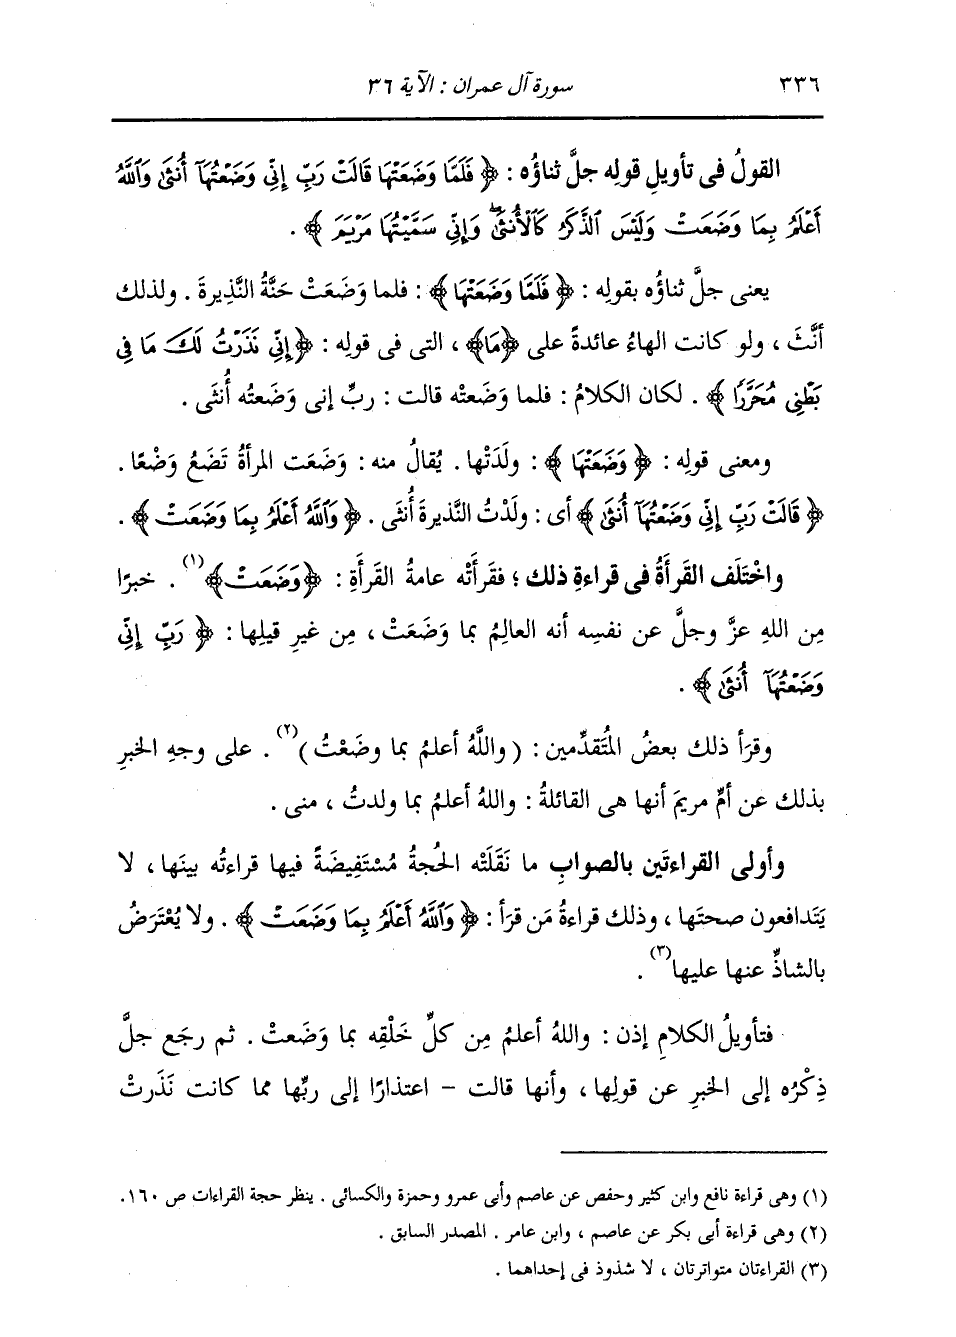 ٣٣٦
سورة آل عمران : الآية ٣٦
القولُ فى تأويلِ قولِه جلَّ ثناؤُه : ﴿ فَلَمَّا وَضَعَتْهَا قَالَتْ رَبِّ إِنِّي وَضَعْتُهَآ أُنثَىٰ وَٱللَّهُ
أَعْلَمُ بِمَا وَضَعَتْ وَلَيْسَ ٱلذَّكَرُ كَٱلْأُنثَىٰۖ وَإِنِّي سَمَّيْتُهَا مَرْيَمَ ﴾ .
يعنى جلَّ ثناؤُه بقولِه : ﴿ فَلَمَّا وَضَعَتْهَا ﴾ : فلما وَضَعَتْ حَنَّةُ النَّذِيرةَ . ولذلك
أنَّثَ ، ولو كانت الهاءُ عائدةً على ﴿مَا﴾ ، التى فى قولِه : ﴿إِنِّي نَذَرْتُ لَكَ مَا فِي
بَطْنِي مُحَرَّرًا ﴾ . لكان الكلامُ : فلما وَضَعتْه قالت : ربِّ إنى وَضَعتُه أُنثَى .
ومعنى قولِه : ﴿ وَضَعَتْهَا ﴾ : ولَدَتْها . يُقالُ منه : وَضَعَت المرأةُ تَضَعُ وَضْعًا .
﴿ قَالَتْ رَبِّ إِنِّي وَضَعْتُهَآ أُنثَىٰ ﴾ أى : ولَدْتُ النَّذيرةَ أُنثَى . ﴿ وَٱللَّهُ أَعْلَمُ بِمَا وَضَعَتْ ﴾ .
واخْتَلَف القَرأَةُ فى قراءةِ ذلك ؛ فقَرأَتْه عامةُ القَرأَةِ : ﴿وَضَعَتْ﴾(١) . خبرًا
مِن اللهِ عزَّ وجلَّ عن نفسِه أنه العالِمُ بما وَضَعَتْ ، مِن غيرِ قيلِها : ﴿ رَبِّ إِنِّي
وَضَعْتُهَآ أُنثَىٰ ﴾ .
وقرَأ ذلك بعضُ المُتَقدِّمين : ( واللَّهُ أعلمُ بما وضَعْتُ )(٢) . على وجهِ الخبرِ
بذلك عن أمِّ مريمَ أنها هى القائلةُ : واللهُ أعلمُ بما ولدتُ ، منى .
وأولى القراءتَين بالصوابِ ما نَقَلَتْه الحُجةُ مُسْتَفِيضَةً فيها قراءتُه بينَها ، لا
يَتَدافعون صحتَها ، وذلك قراءةُ مَن قرَأ : ﴿ وَٱللَّهُ أَعْلَمُ بِمَا وَضَعَتْ ﴾ . ولا يُعْتَرَضُ
بالشاذِّ عنها عليها(٣) .
فتأويلُ الكلامِ إذن : واللهُ أعلمُ مِن كلِّ خَلْقِه بما وَضَعتْ . ثم رجَع جلَّ
ذِكْرُه إلى الخبرِ عن قولِها ، وأنها قالت – اعتذارًا إلى ربِّها مما كانت نَذَرتْ
(١) وهى قراءة نافع وابن كثير وحفص عن عاصم وأبى عمرو وحمزة والكسائى . ينظر حجة القراءات ص ١٦٠.
(٢) وهى قراءة أبى بكر عن عاصم ، وابن عامر . المصدر السابق .
(٣) القراءتان متواترتان ، لا شذوذ فى إحداهما .